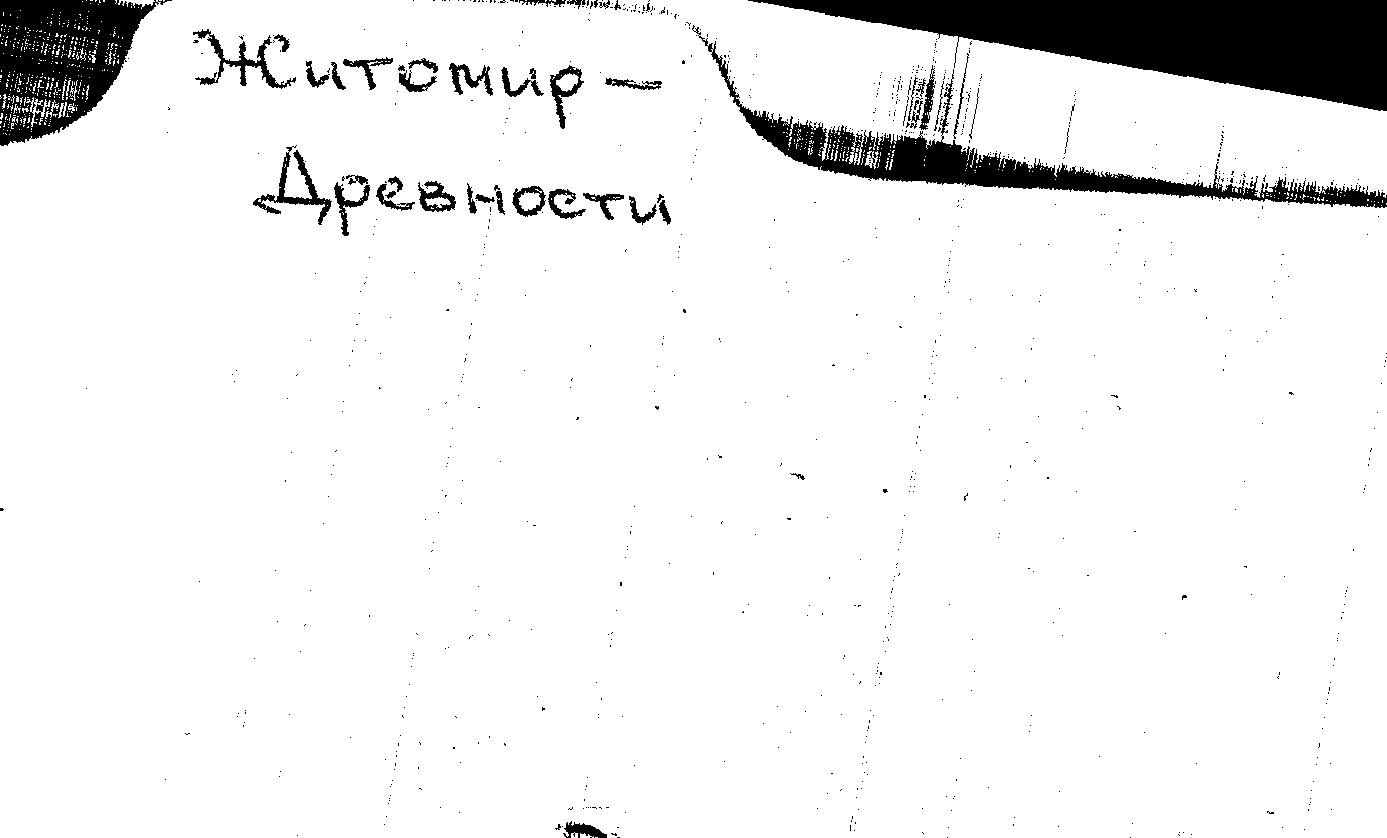 Житомир —
Древности